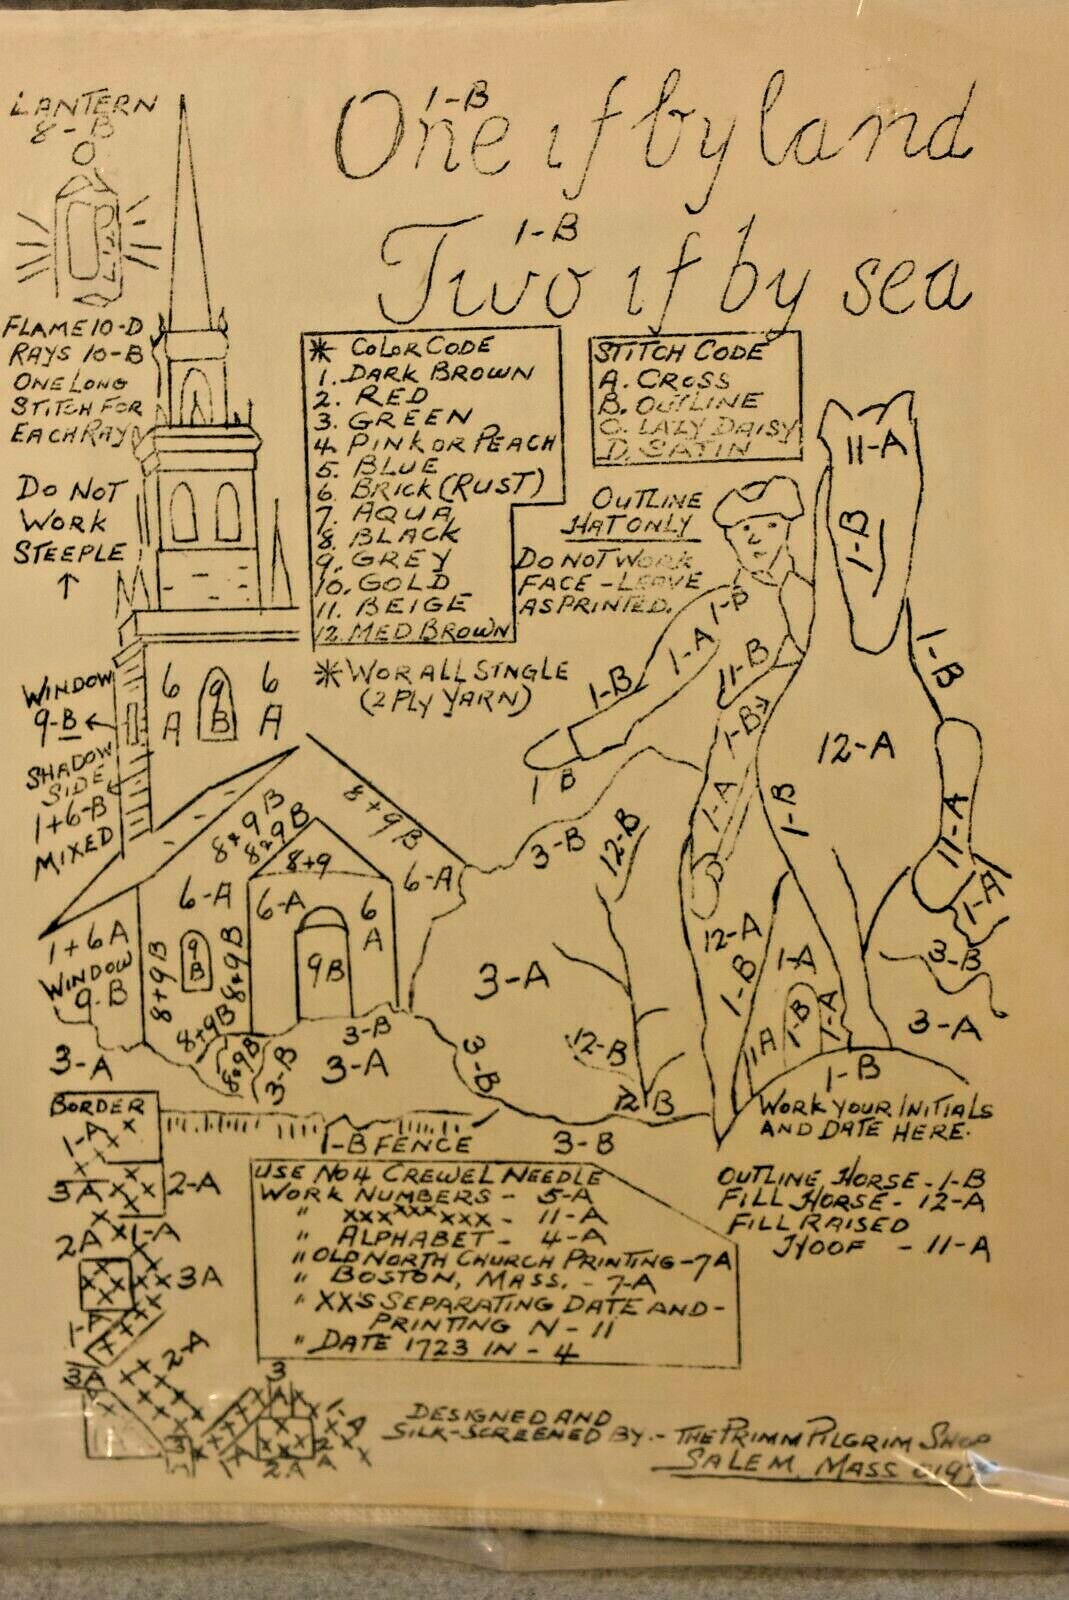 LANTERN
8-B
One if by land
1-B
Two if by sea
1-B
FLAME 10-D
RAYS 10-B
ONE LONG
STITCH FOR
EACH RAY
DO NOT
WORK
STEEPLE
* COLOR CODE
1. DARK BROWN
2. RED
3. GREEN
4. PINK OR PEACH
5. BLUE
6. BRICK (RUST)
7. AQUA
8. BLACK
9. GREY
10. GOLD
11. BEIGE
12. MED BROWN
STITCH CODE
A. CROSS
B. OUTLINE
C. LAZY DAISY
D. SATIN
OUTLINE
HAT ONLY
DO NOT WORK
FACE - LEAVE
AS PRINTED.
* WOR ALL SINGLE
(2 PLY YARN)
11-A
1-B
1-B
1-B
1-A
1-B
11-B
1-B
1-B
12-A
1-A
1-B
11-A
1-A
D
WINDOW
9-B
SHADOW
SIDE
1+6-B
MIXED
6
A
9
B
6
A
8+9B
8+9B
8+9B
8+9
6-A
6-A
6-A
6
A
1+6A
WINDOW
9-B
8+9B
9
B
8+9B
9B
8+9B
8+9B
3-B
3-A
3-B
3-A
3-B
12-B
3-A
3-B
12-B
12 B
12-A
1-B
1-A
11A
1-B
1-A
3-B
3-A
1-B
1-B FENCE
3-B
WORK YOUR INITIALS
AND DATE HERE.
BORDER
1-A
3A
2-A
2A
1-A
3A
1-A
2-A
3A
3
1A
3
A
1-A
2
A
2A
USE NO 4 CREWEL NEEDLE
WORK NUMBERS - 5-A
" XXXXXXXXX - 11-A
" ALPHABET - 4-A
" OLD NORTH CHURCH PRINTING - 7A
" BOSTON, MASS. - 7-A
" XX'S SEPARATING DATE AND -
PRINTING N - 11
" DATE 1723 IN - 4
OUTLINE HORSE - 1-B
FILL HORSE - 12-A
FILL RAISED
HOOF - 11-A
DESIGNED AND
SILK-SCREENED BY - THE PRIMM PILGRIM SHOP
SALEM, MASS